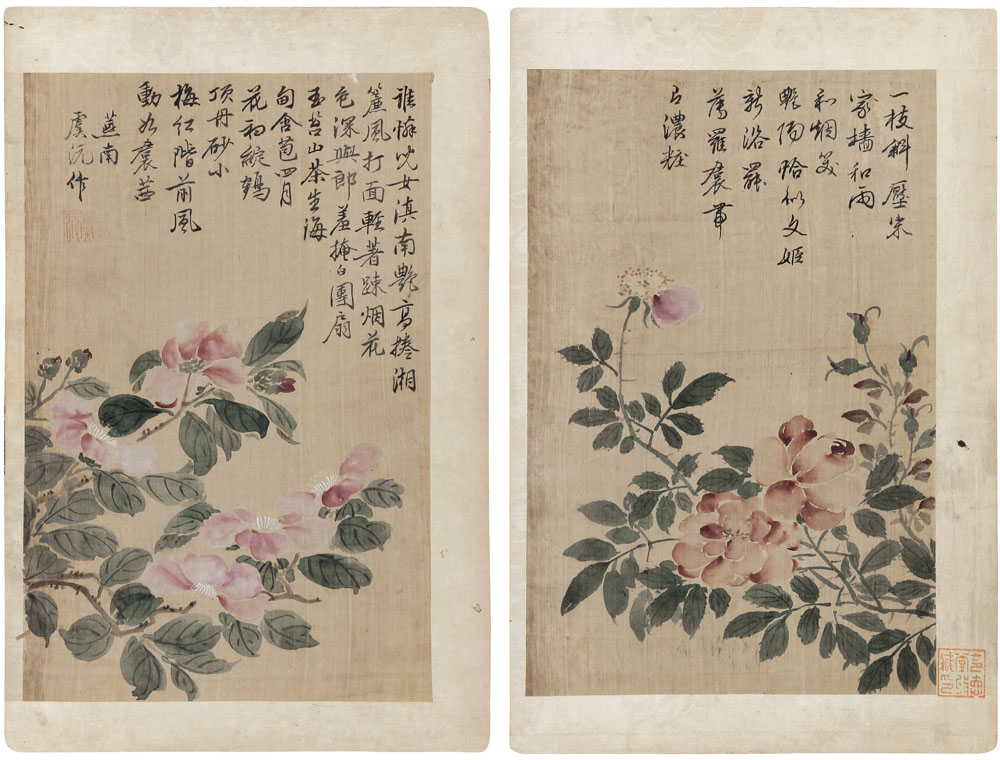 誰憐兒女滇南艷高捲湘
簾風打面輕著疎烟花
色深與郎羞掩白團扇
玉茗山茶生海
旬含苞四月
花初綻鶴
頂丹砂小
梅紅階前風
動如裠茜
燕南
虞沅作
一枝斜壓宋
家墻和雨
和烟笑
艷陽恰似文姬
新浴罷
薄羅裠
濃粧